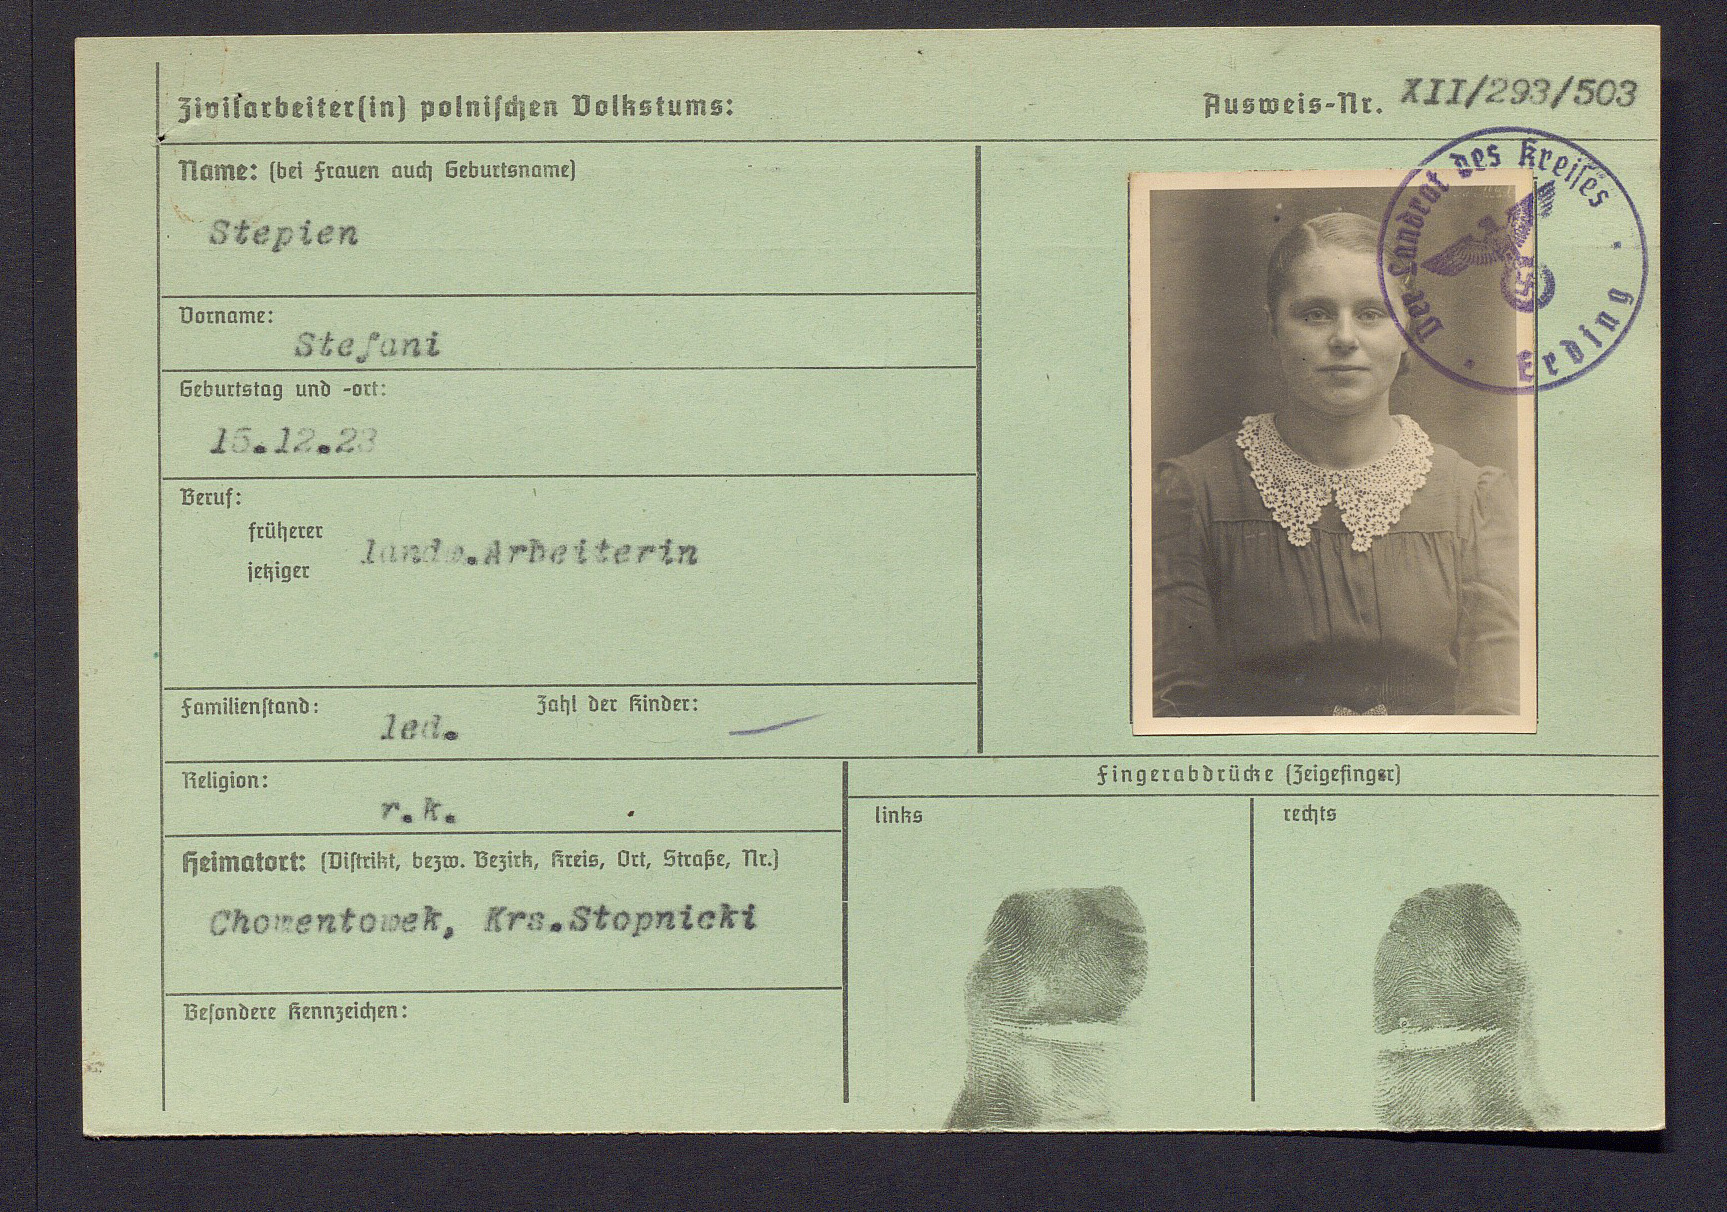 Zivilarbeiter(in) polnischen Volkstums:
Ausweis-Nr. XII/293/503
Name: (bei Frauen auch Geburtsname)
Stepien
Vorname:
Stefani
Geburtstag und -ort:
15.12.23
Beruf:
früherer
jetziger
landw.Arbeiterin
Familienstand:
led.
Zahl der Kinder:
—
Religion:
r.k.
Heimatort: (Distrikt, bezw. Bezirk, Kreis, Ort, Straße, Nr.)
Chomentowek, Krs.Stopnicki
Besondere Kennzeichen:
Der Landrat des Kreises
Erding
Fingerabdrücke (Zeigefinger)
links
rechts